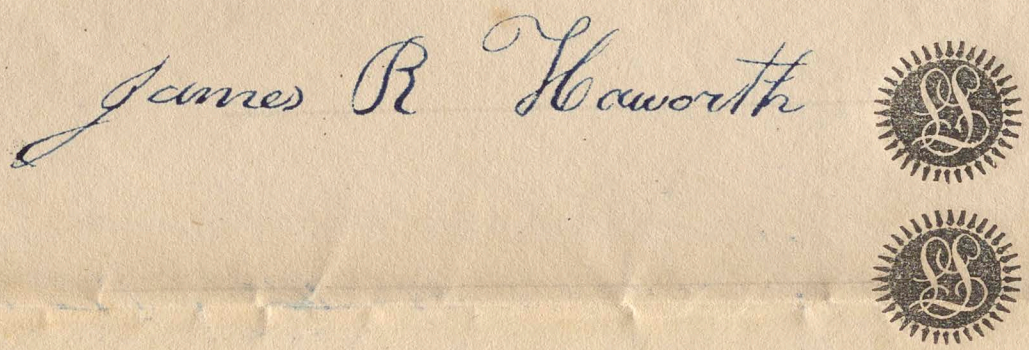 James R Haworth LS
LS